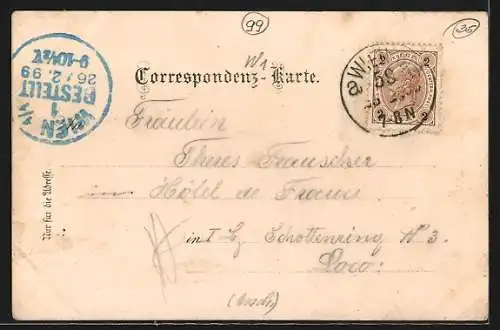 99
35
W/1
Correspondenz-Karte.
WIEN 1/1
BESTELLT
1
26/2 99
9-10½V
WIEN
2
2
2
Fräulein
Theres Trauscher
in Hôtel de France
in I. Bz Schottenring N 3.
Loco.
Nur für die Adresse.